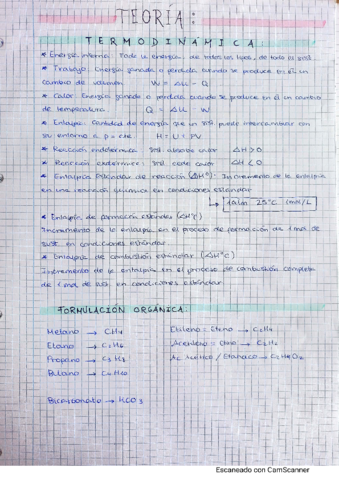 TEORÍA:
TERMODINÁMICA
* Energía interna: Toda la energía, de todos los tipos, de todo el sist.
* Trabajo: Energía ganada o perdida cuando se produce en él un
cambio de volumen W = ΔU - Q
* Calor: Energía ganada o perdida cuando se produce en él un cambio
de temperatura. Q = ΔU - W
* Entalpía: Cantidad de energía que un sist puede intercambiar con
su entorno a p = cte H = U + PV
* Reacción endotérmica: Sist absorbe calor ΔH > 0
* Reacción exotérmica: Sist cede calor ΔH < 0
* Entalpía estándar de reacción (ΔHº): Incremento de la entalpía
en una reacción química en condiciones estándar
↳ 1 atm 25ºC 1 mol/L
* Entalpía de formación estándar (ΔHºf)
Incremento de la entalpía en el proceso de formación de 1 mol de
sust en condiciones estándar
* Entalpía de combustión estándar (ΔHºc)
Incremento de la entalpía en el proceso de combustión completa
de 1 mol de sust en condiciones estándar.
FORMULACIÓN ORGÁNICA:
Metano → CH4 Etileno = Eteno → C2H4
Etano → C2H6 Acetileno = Etino → C2H2
Propano → C3H8 Ac. Acético / Etanoico → C2H4O2
Butano → C4H10
Bicarbonato → HCO3
Escaneado con CamScanner